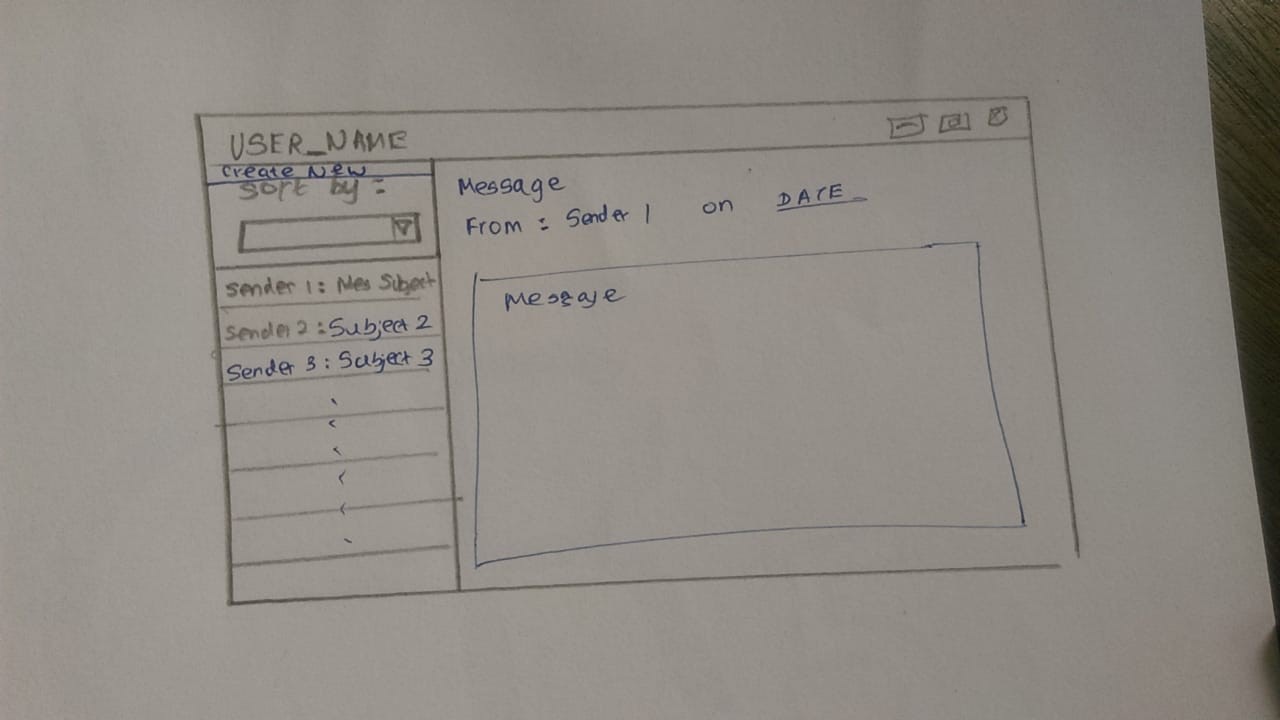 USER_NAME
Create New
Sort by :
Sender 1 : Mes Subject
Sender 2 : Subject 2
Sender 3 : Subject 3
Message
From : Sender 1 on DATE
Message